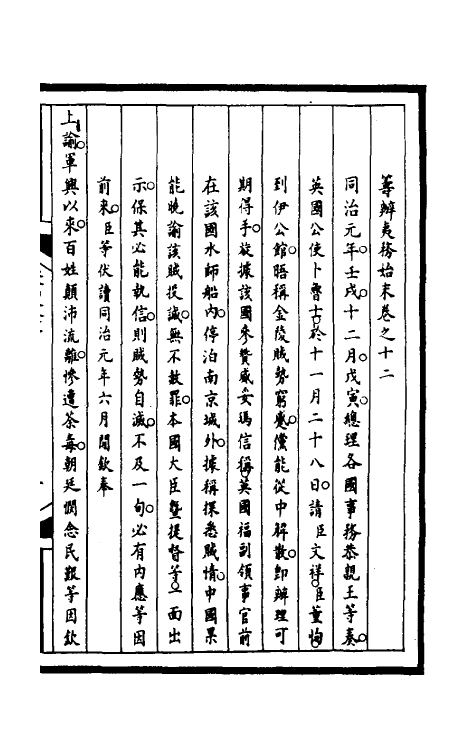 籌辦夷務始末卷之十二
同治元年壬戌。十二月。戊寅。總理各國事務恭親王等奏。
英國公使卜魯士。於十一月二十八日。請臣文祥。臣董恂。
到伊公館。晤稱金陵賊勢窮蹙。儻能從中解散。即辦理可
期得手。旋據該國參贊威妥瑪信稱。英國福副領事官前
在該國水師船內。停泊南京城外。據稱探悉賊情。中國果
能曉諭該賊投誠。無不赦罪。本國大臣暨提督等。一面出
示。保其必能執信。則賊勢自滅。不及一旬。必有內應等因
前來。臣等伏讀同治元年六月閒欽奉
上諭。軍興以來。百姓顛沛流離。慘遭荼毒。朝廷憫念民艱等因欽